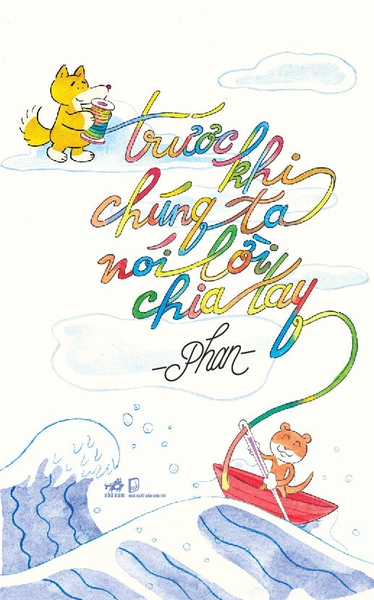 trước khi
chúng ta
nói lời
chia tay
-phan-
nhã nam
NHÀ XUẤT BẢN DÂN TRÍ